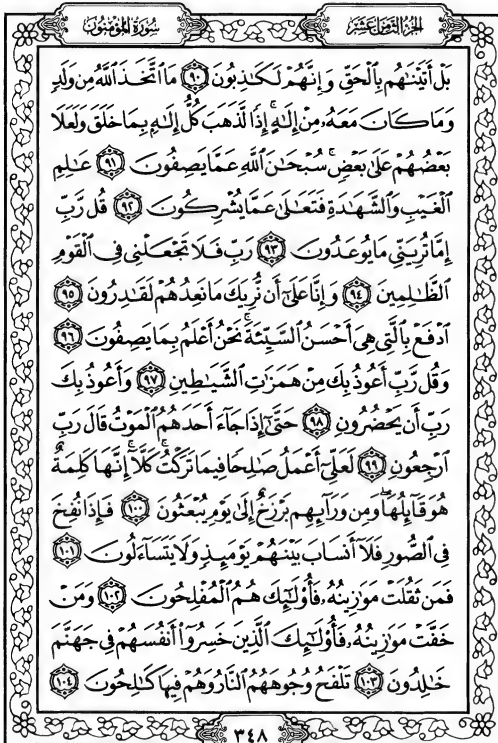 سُورَةُ المُؤْمِنُونَ
الجُزْءُ الثَّامِنَ عَشَرَ
بَلْ أَتَيْنَٰهُم بِٱلْحَقِّ وَإِنَّهُمْ لَكَٰذِبُونَ ٩٠ مَا ٱتَّخَذَ ٱللَّهُ مِن وَلَدٍ
وَمَا كَانَ مَعَهُۥ مِنْ إِلَٰهٍ ۚ إِذًا لَّذَهَبَ كُلُّ إِلَٰهٍۭ بِمَا خَلَقَ وَلَعَلَا
بَعْضُهُمْ عَلَىٰ بَعْضٍ ۚ سُبْحَٰنَ ٱللَّهِ عَمَّا يَصِفُونَ ٩١ عَٰلِمِ
ٱلْغَيْبِ وَٱلشَّهَٰدَةِ فَتَعَٰلَىٰ عَمَّا يُشْرِكُونَ ٩٢ قُل رَّبِّ
إِمَّا تُرِيَنِّى مَا يُوعَدُونَ ٩٣ رَبِّ فَلَا تَجْعَلْنِى فِى ٱلْقَوْمِ
ٱلظَّٰلِمِينَ ٩٤ وَإِنَّا عَلَىٰٓ أَن نُّرِيَكَ مَا نَعِدُهُمْ لَقَٰدِرُونَ ٩٥
ٱدْفَعْ بِٱلَّتِى هِىَ أَحْسَنُ ٱلسَّيِّئَةَ ۚ نَحْنُ أَعْلَمُ بِمَا يَصِفُونَ ٩٦
وَقُل رَّبِّ أَعُوذُ بِكَ مِنْ هَمَزَٰتِ ٱلشَّيَٰطِينِ ٩٧ وَأَعُوذُ بِكَ
رَبِّ أَن يَحْضُرُونِ ٩٨ حَتَّىٰٓ إِذَا جَآءَ أَحَدَهُمُ ٱلْمَوْتُ قَالَ رَبِّ
ٱرْجِعُونِ ٩٩ لَعَلِّىٓ أَعْمَلُ صَٰلِحًا فِيمَا تَرَكْتُ ۚ كَلَّآ ۚ إِنَّهَا كَلِمَةٌ
هُوَ قَآئِلُهَا ۖ وَمِن وَرَآئِهِم بَرْزَخٌ إِلَىٰ يَوْمِ يُبْعَثُونَ ١٠٠ فَإِذَا نُفِخَ
فِى ٱلصُّورِ فَلَآ أَنسَابَ بَيْنَهُمْ يَوْمَئِذٍ وَلَا يَتَسَآءَلُونَ ١٠١
فَمَن ثَقُلَتْ مَوَٰزِينُهُۥ فَأُو۟لَٰٓئِكَ هُمُ ٱلْمُفْلِحُونَ ١٠٢ وَمَنْ
خَفَّتْ مَوَٰزِينُهُۥ فَأُو۟لَٰٓئِكَ ٱلَّذِينَ خَسِرُوٓا۟ أَنفُسَهُمْ فِى جَهَنَّمَ
خَٰلِدُونَ ١٠٣ تَلْفَحُ وُجُوهَهُمُ ٱلنَّارُ وَهُمْ فِيهَا كَٰلِحُونَ ١٠٤
٣٤٨